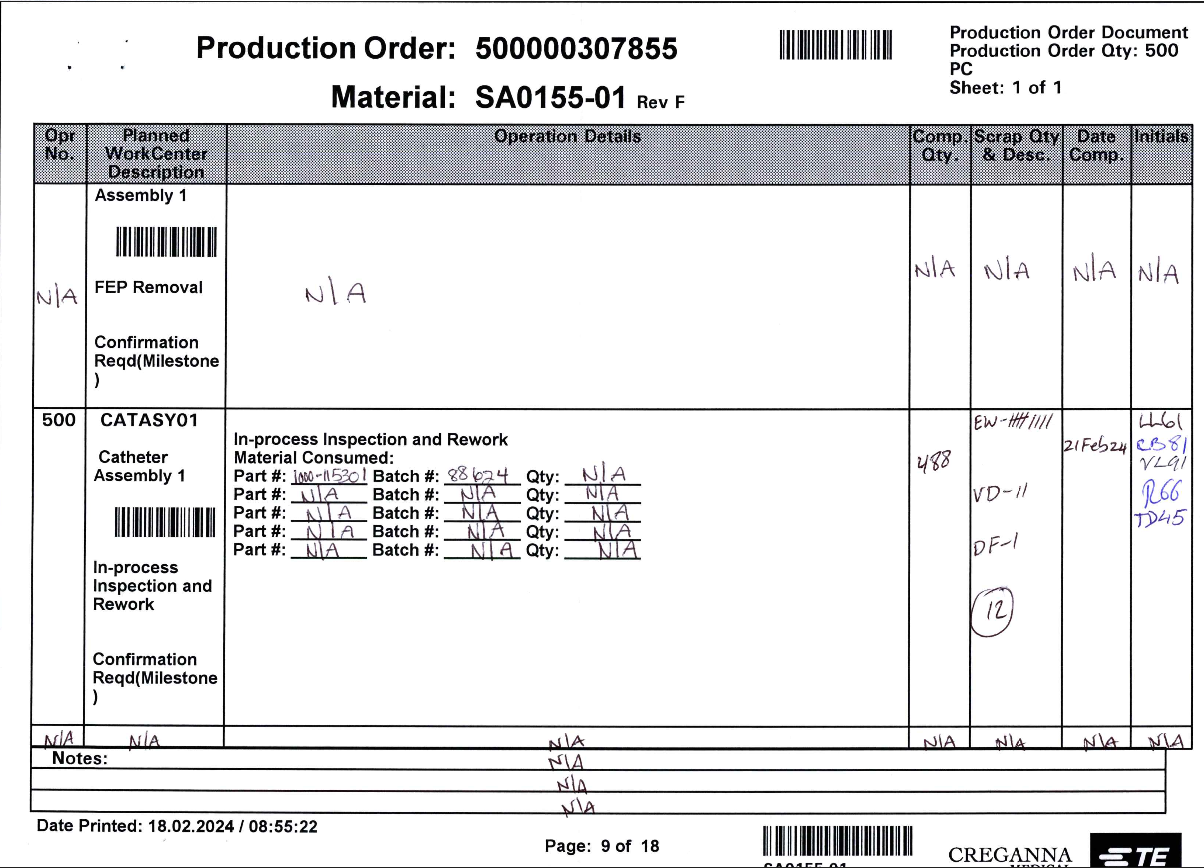 Production Order: 500000307855
Material: SA0155-01 Rev F
Production Order Document
Production Order Qty: 500
PC
Sheet: 1 of 1
Opr No. Planned WorkCenter Description Operation Details Comp. Qty. Scrap Qty & Desc. Date Comp. Initials
Assembly 1
N/A FEP Removal N/A N/A N/A N/A N/A
Confirmation
Reqd(Milestone
)
500 CATASY01
Catheter
Assembly 1
In-process
Inspection and
Rework
Confirmation
Reqd(Milestone
)
In-process Inspection and Rework
Material Consumed:
Part #: 1000-115301 Batch #: 88624 Qty: N/A
Part #: N/A Batch #: N/A Qty: N/A
Part #: N/A Batch #: N/A Qty: N/A
Part #: N/A Batch #: N/A Qty: N/A
Part #: N/A Batch #: N/A Qty: N/A
488
EW-
VD-11
DF-1
12
21Feb24
LL61
CB81
VL91
R66
TD45
N/A N/A N/A N/A N/A N/A N/A
Notes: N/A
N/A
N/A
Date Printed: 18.02.2024 / 08:55:22
Page: 9 of 18
SA0155-01
CREGANNA
MEDICAL
TE